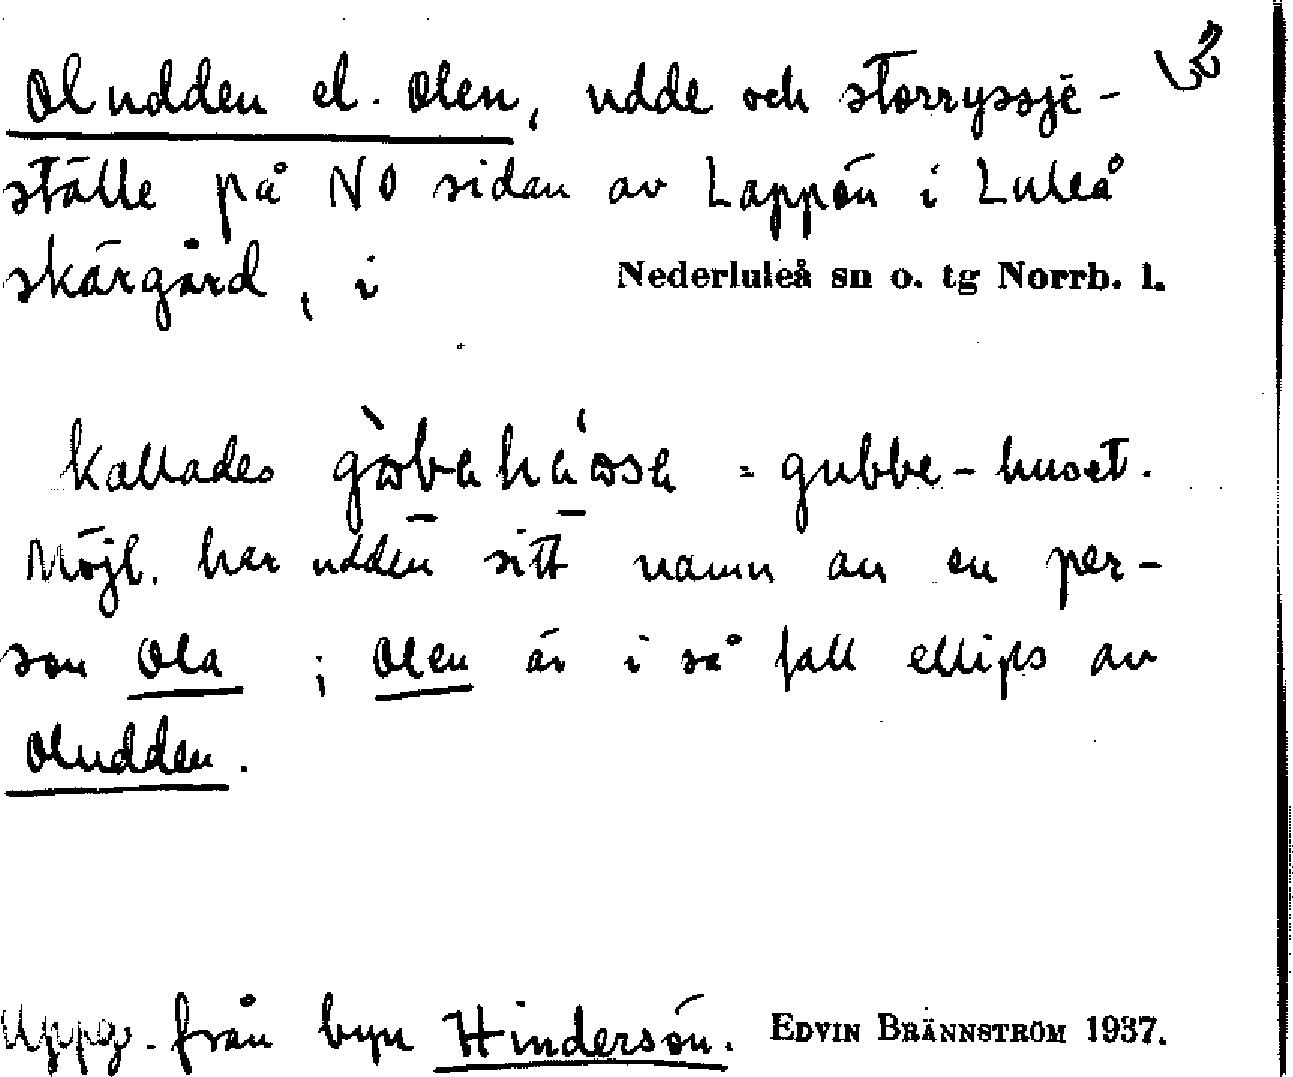 Oludden el. Olen, udde och storryssje-
ställe på NO sidan av Lappön i Luleå
skärgård, i Nederluleå sn o. tg Norrb. l.
kallades = gubbe-huset.
Möjl. har udden sitt namn av en per-
son Ola ; Olen är i så fall ellips av
Oludden.
Uppg. från byn Hindersön. EDVIN BRÄNNSTRÖM 1937.